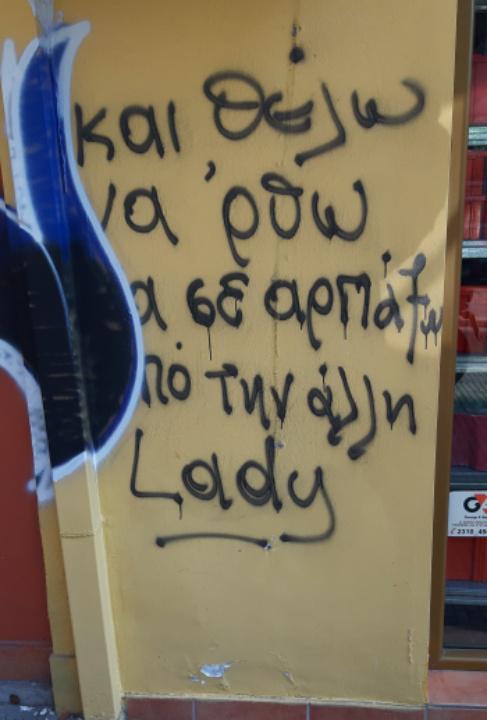 και θέλω
να 'ρθω
α σε αρπάξω
πό την άλλη
Lady
G4
2310